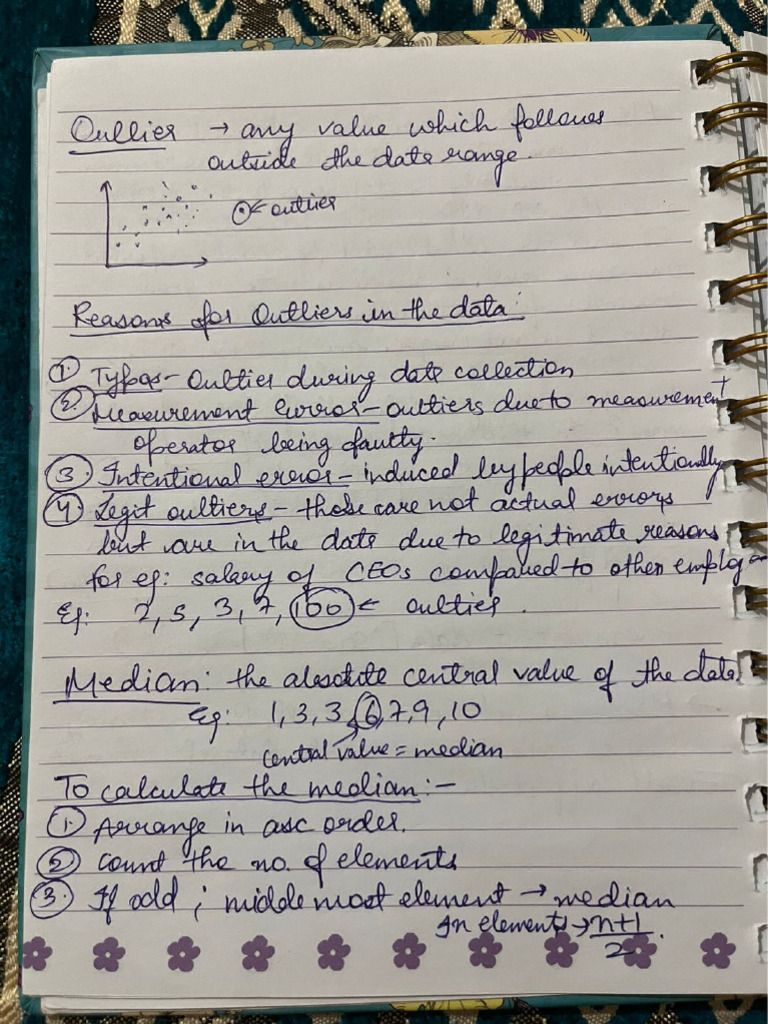 Outlier → any value which follows
outside the data range.
⊙← outlier
Reasons for Outliers in the data:
① Typos - Outlier during data collection
② Measurement Error - outliers due to measurement
operator being faulty.
③ Intentional error - induced by people intentionally
④ Legit outliers - those are not actual errors
but are in the data due to legitimate reasons
for eg: salary of CEOs compared to other employ
Eg: 2, 5, 3, 7, 100 ← outlier.
Median: the absolute central value of the data
Eg: 1, 3, 3, 6, 7, 9, 10
central value = median
To calculate the median :-
① Arrange in asc order.
② count the no. of elements
③ If odd ; middle most element → median
In elements → n+1/2.